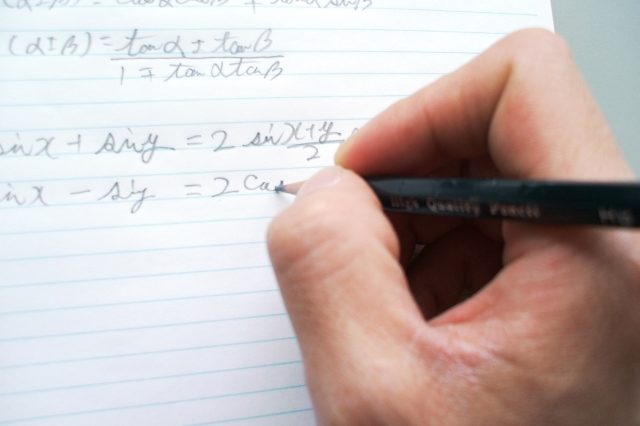 (α±β) = tanα ± tanβ / 1 ∓ tanα tanβ
sinx + siny = 2 sin x+y / 2
inx - siy = 2 Cos
High Quality Pencil